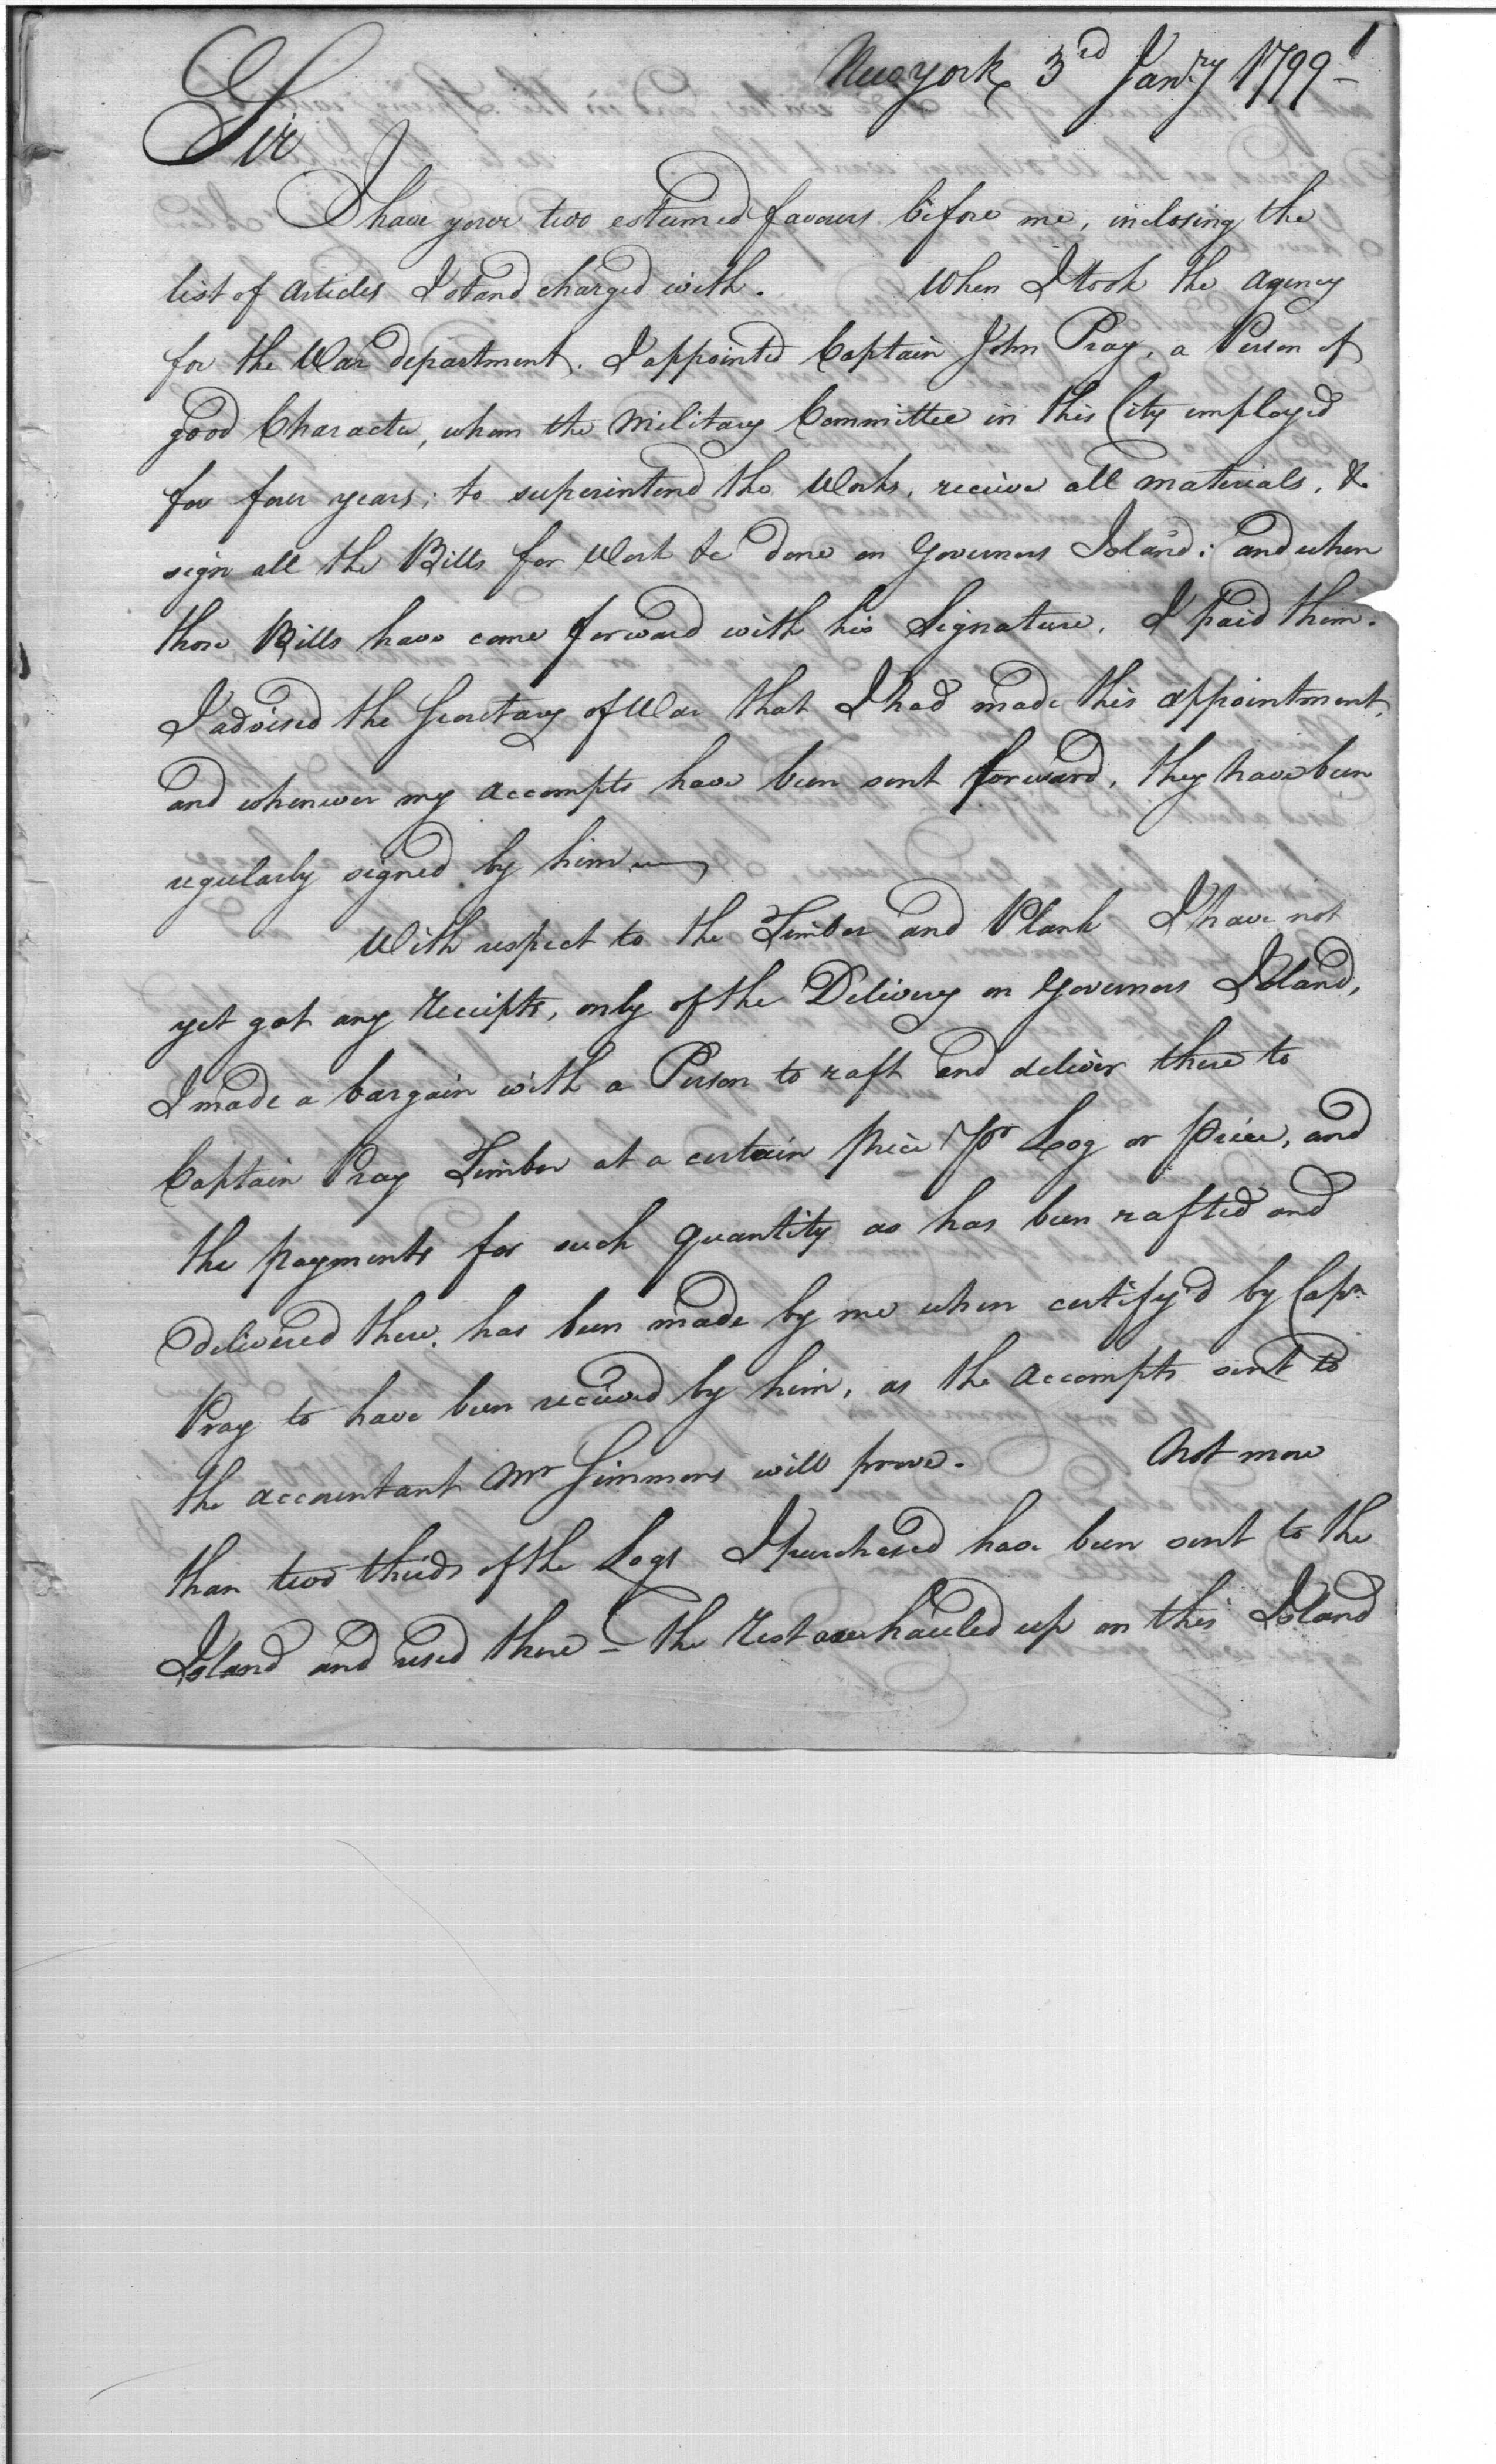 New york 3rd Janry 1799
Sir
I have your two esteemed favours before me, inclosing the
list of Articles I stand charged with. When I took the Agency
for the War department. I appointed Captain John Pray, a Person of
good Character, whom the Military Committee in this City employed
for four years; to superintend the Works, receive all materials, &
sign all the Bills for Work &c done on Governors Island: and when
those Bills have come forward with his Signature, I paid them.
I advised the Secretary of War that I had made this appointment,
and whenever my accompts have been sent forward, they have been
regularly signed by him
With respect to the Timber and Plank I have not
yet got any receipts, only of the Delivery on Governors Island,
I made a bargain with a Person to raft and deliver there to
Captain Pray Timber at a certain price pr Log or piece, and
the payments for such quantity as has been rafted and
delivered there, has been made by me when certify'd by Capn
Pray to have been received by him, as the accompts sent to
the accountant Mr Simmons will prove. Not more
than two thirds of the Logs I purchased have been sent to the
Island and used there – the rest are hauled up on this Island